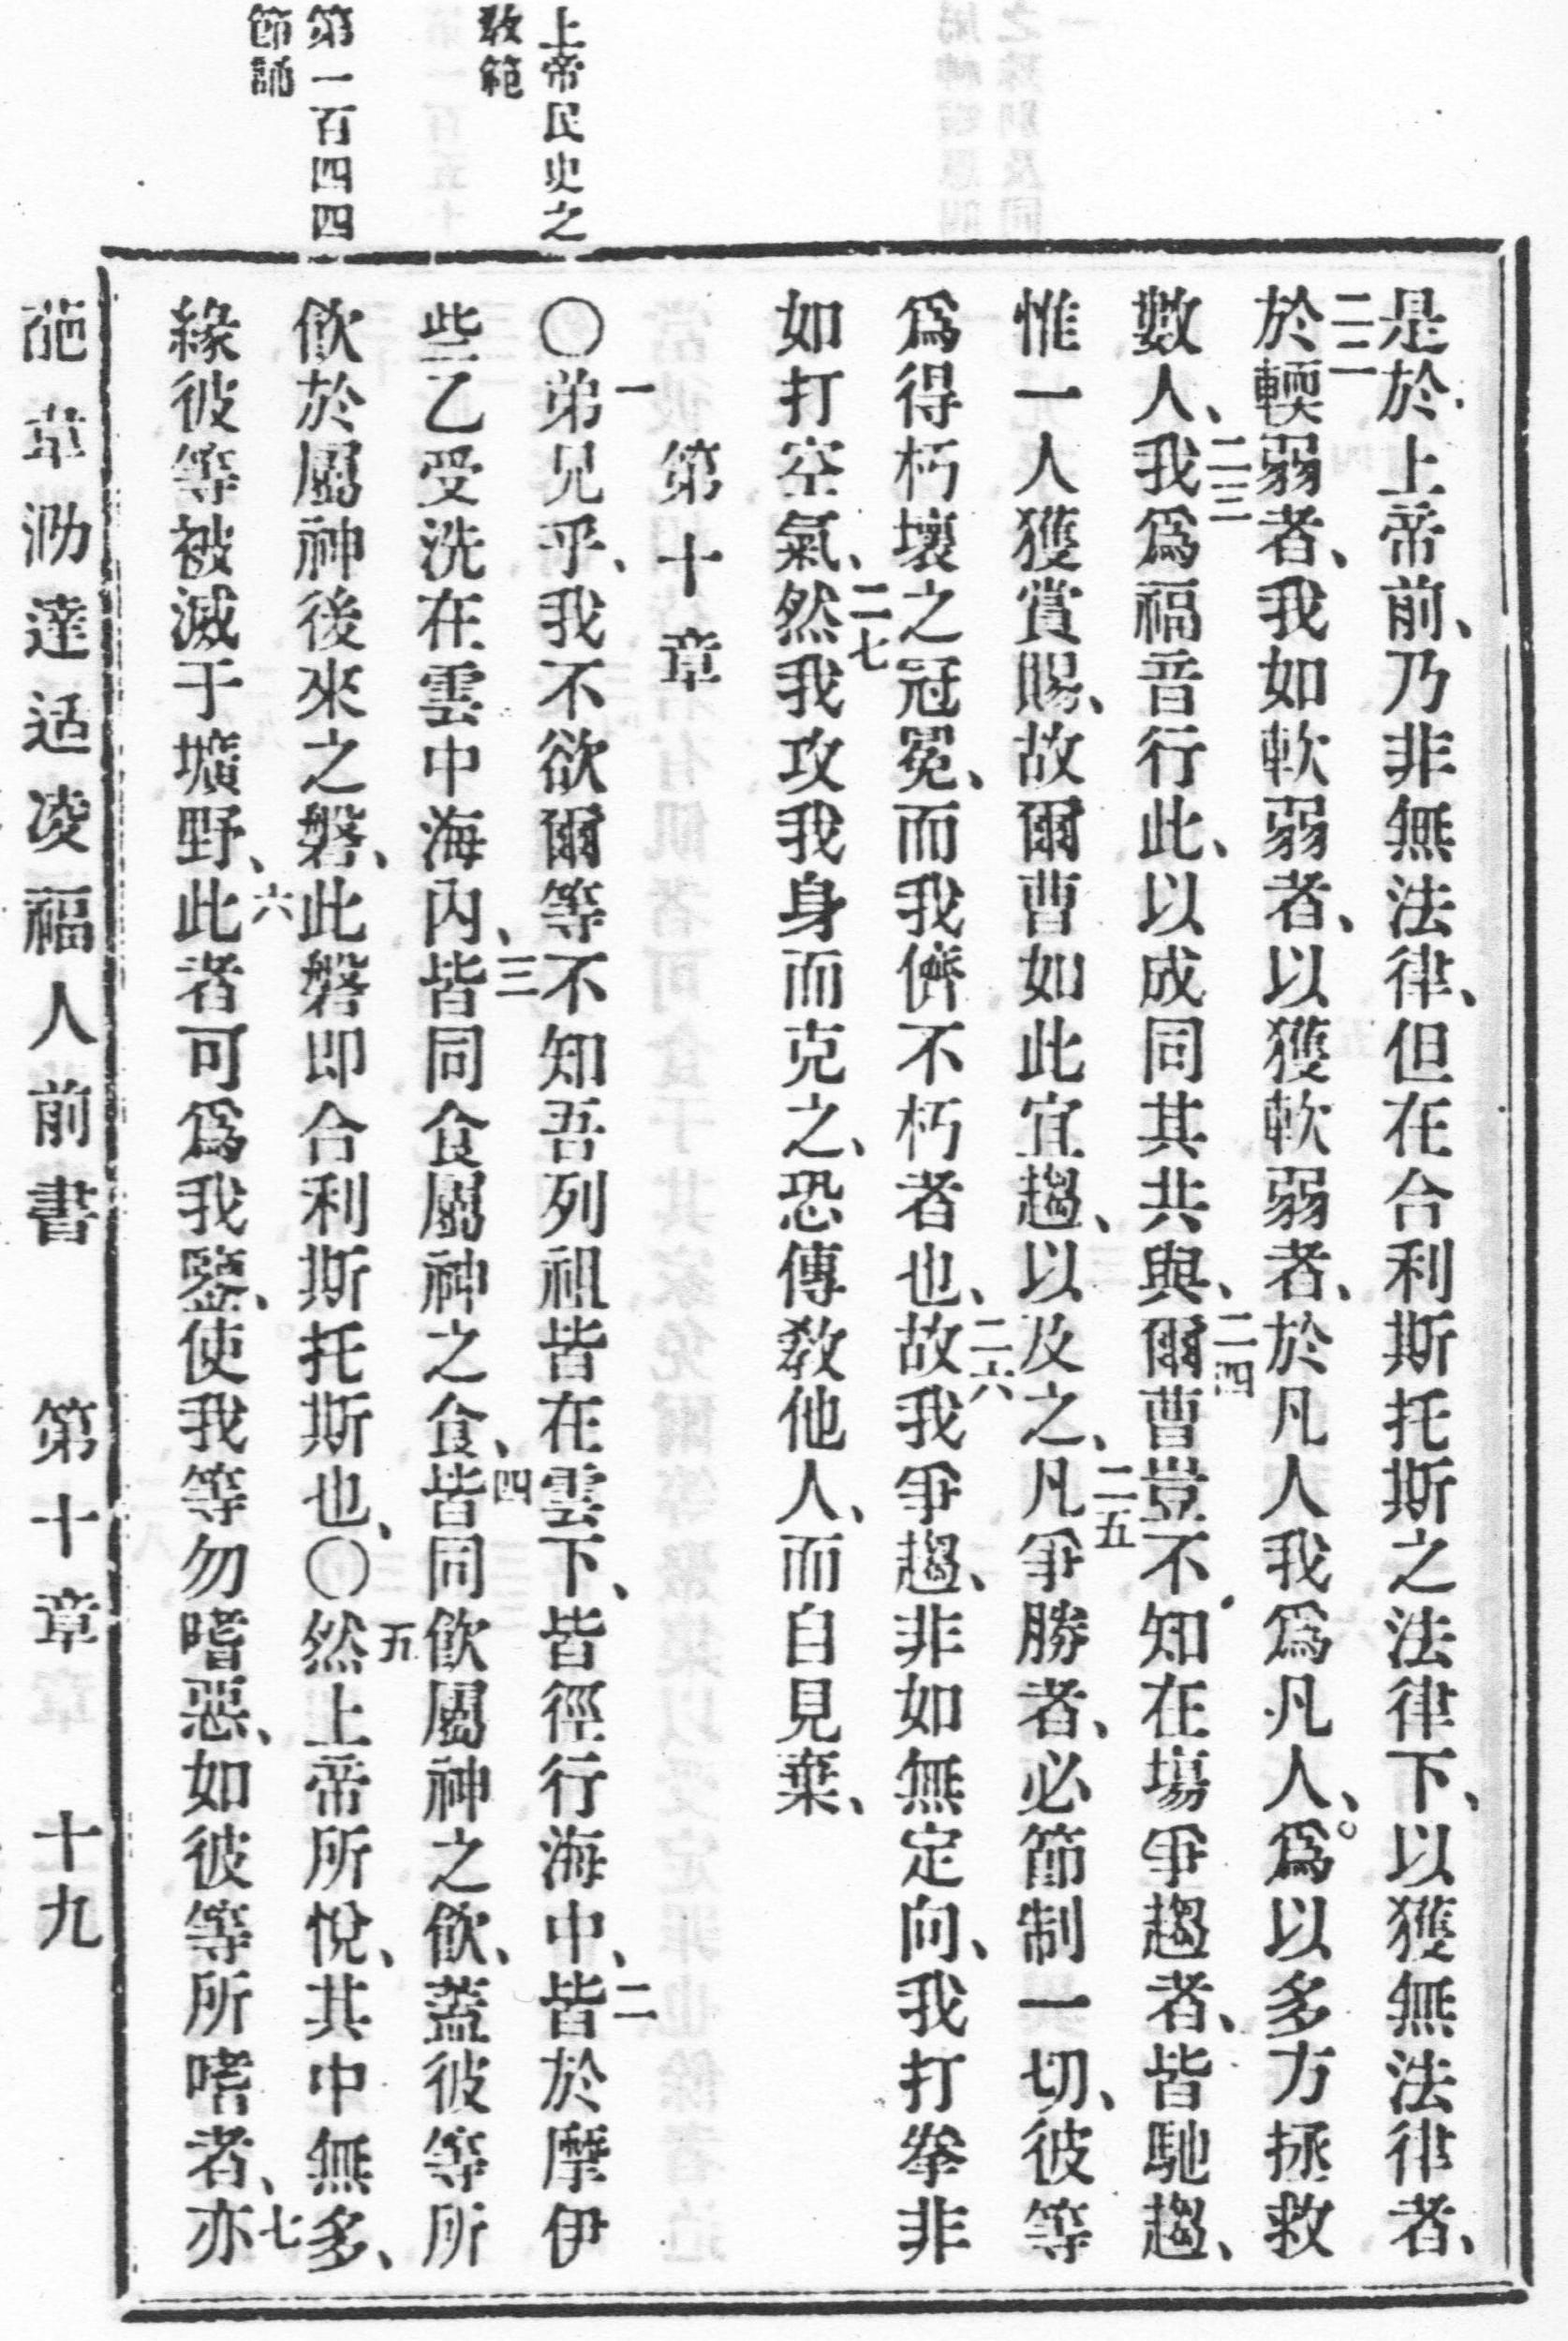 上帝民史之
敎範
第一百四四
節誦
是於上帝前、乃非無法律、但在合利斯托斯之法律下、以獲無法律者、
二二於輭弱者、我如軟弱者、以獲軟弱者、於凡人我爲凡人、爲以多方拯救
數人、二三我爲福音行此、以成同其共與、二四爾曹豈不知在塲爭趨者、皆馳趨、
惟一人獲賞賜、故爾曹如此宜趨、以及之、二五凡爭勝者、必節制一切、彼等
爲得朽壞之冠冕、而我儕不朽者也、二六故我爭趨、非如無定向、我打拳非
如打空氣、二七然我攻我身而克之、恐傳敎他人、而自見棄、
第十章
〇一弟兄乎、我不欲爾等不知吾列祖皆在雲下、皆徑行海中、二皆於摩伊
些乙受洗在雲中海內、三皆同食屬神之食、四皆同飲屬神之飲、蓋彼等所
飲於屬神後來之磐、此磐即合利斯托斯也、〇五然上帝所悅、其中無多、
緣彼等被滅于壙野、六此者可爲我鑒、使我等勿嗜惡、如彼等所嗜者、七亦
葩韋泐達适凌福人前書 第十章 十九